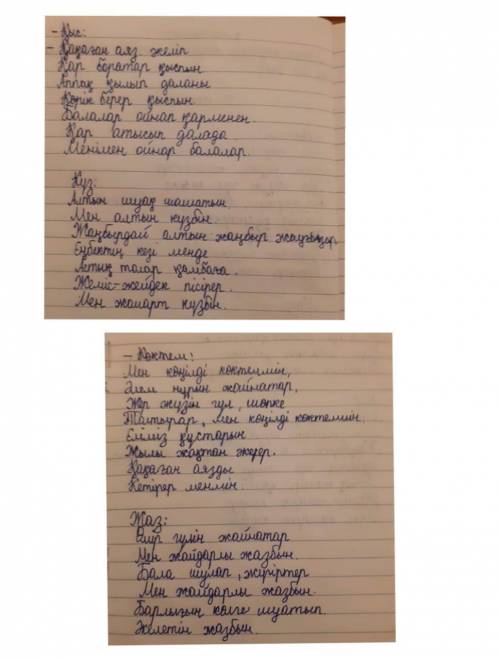 - Қыс:
- Қақаған аяз желіп
Қар боратар қыспын
Аппақ қылып даланы
Көрік берер қыспын.
Балалар ойнап қарменен.
Қар атысып далада
Менімен ойнар балалар.
Күз:
Алтын шуақ шашатын
Мен алтын күзбін.
Жаңбырдай алтын жаңбыр
Еңбектің кезі менде
Астық толар қамбаға.
Жеміс-жейдек пісірер.
Мен жомарт күзбін.
- Көктем:
Мен көңілді көктеммін,
Әлем нұрын жайнатар,
Жер жүзін гүл, шөпке
Толтырар, мен көңілді көктеммін.
Еліміз құстарын
Жылы жақтан жерер.
Қақаған аязды
Кетірер менмін.
Жаз:
Өмір гүлін жайнатар
Мен жайдарлы жазбын.
Бала шулап, жүгіріптер
Мен жайдарлы жазбын.
Барлығын көлге шуатып
Желетін жазбын.